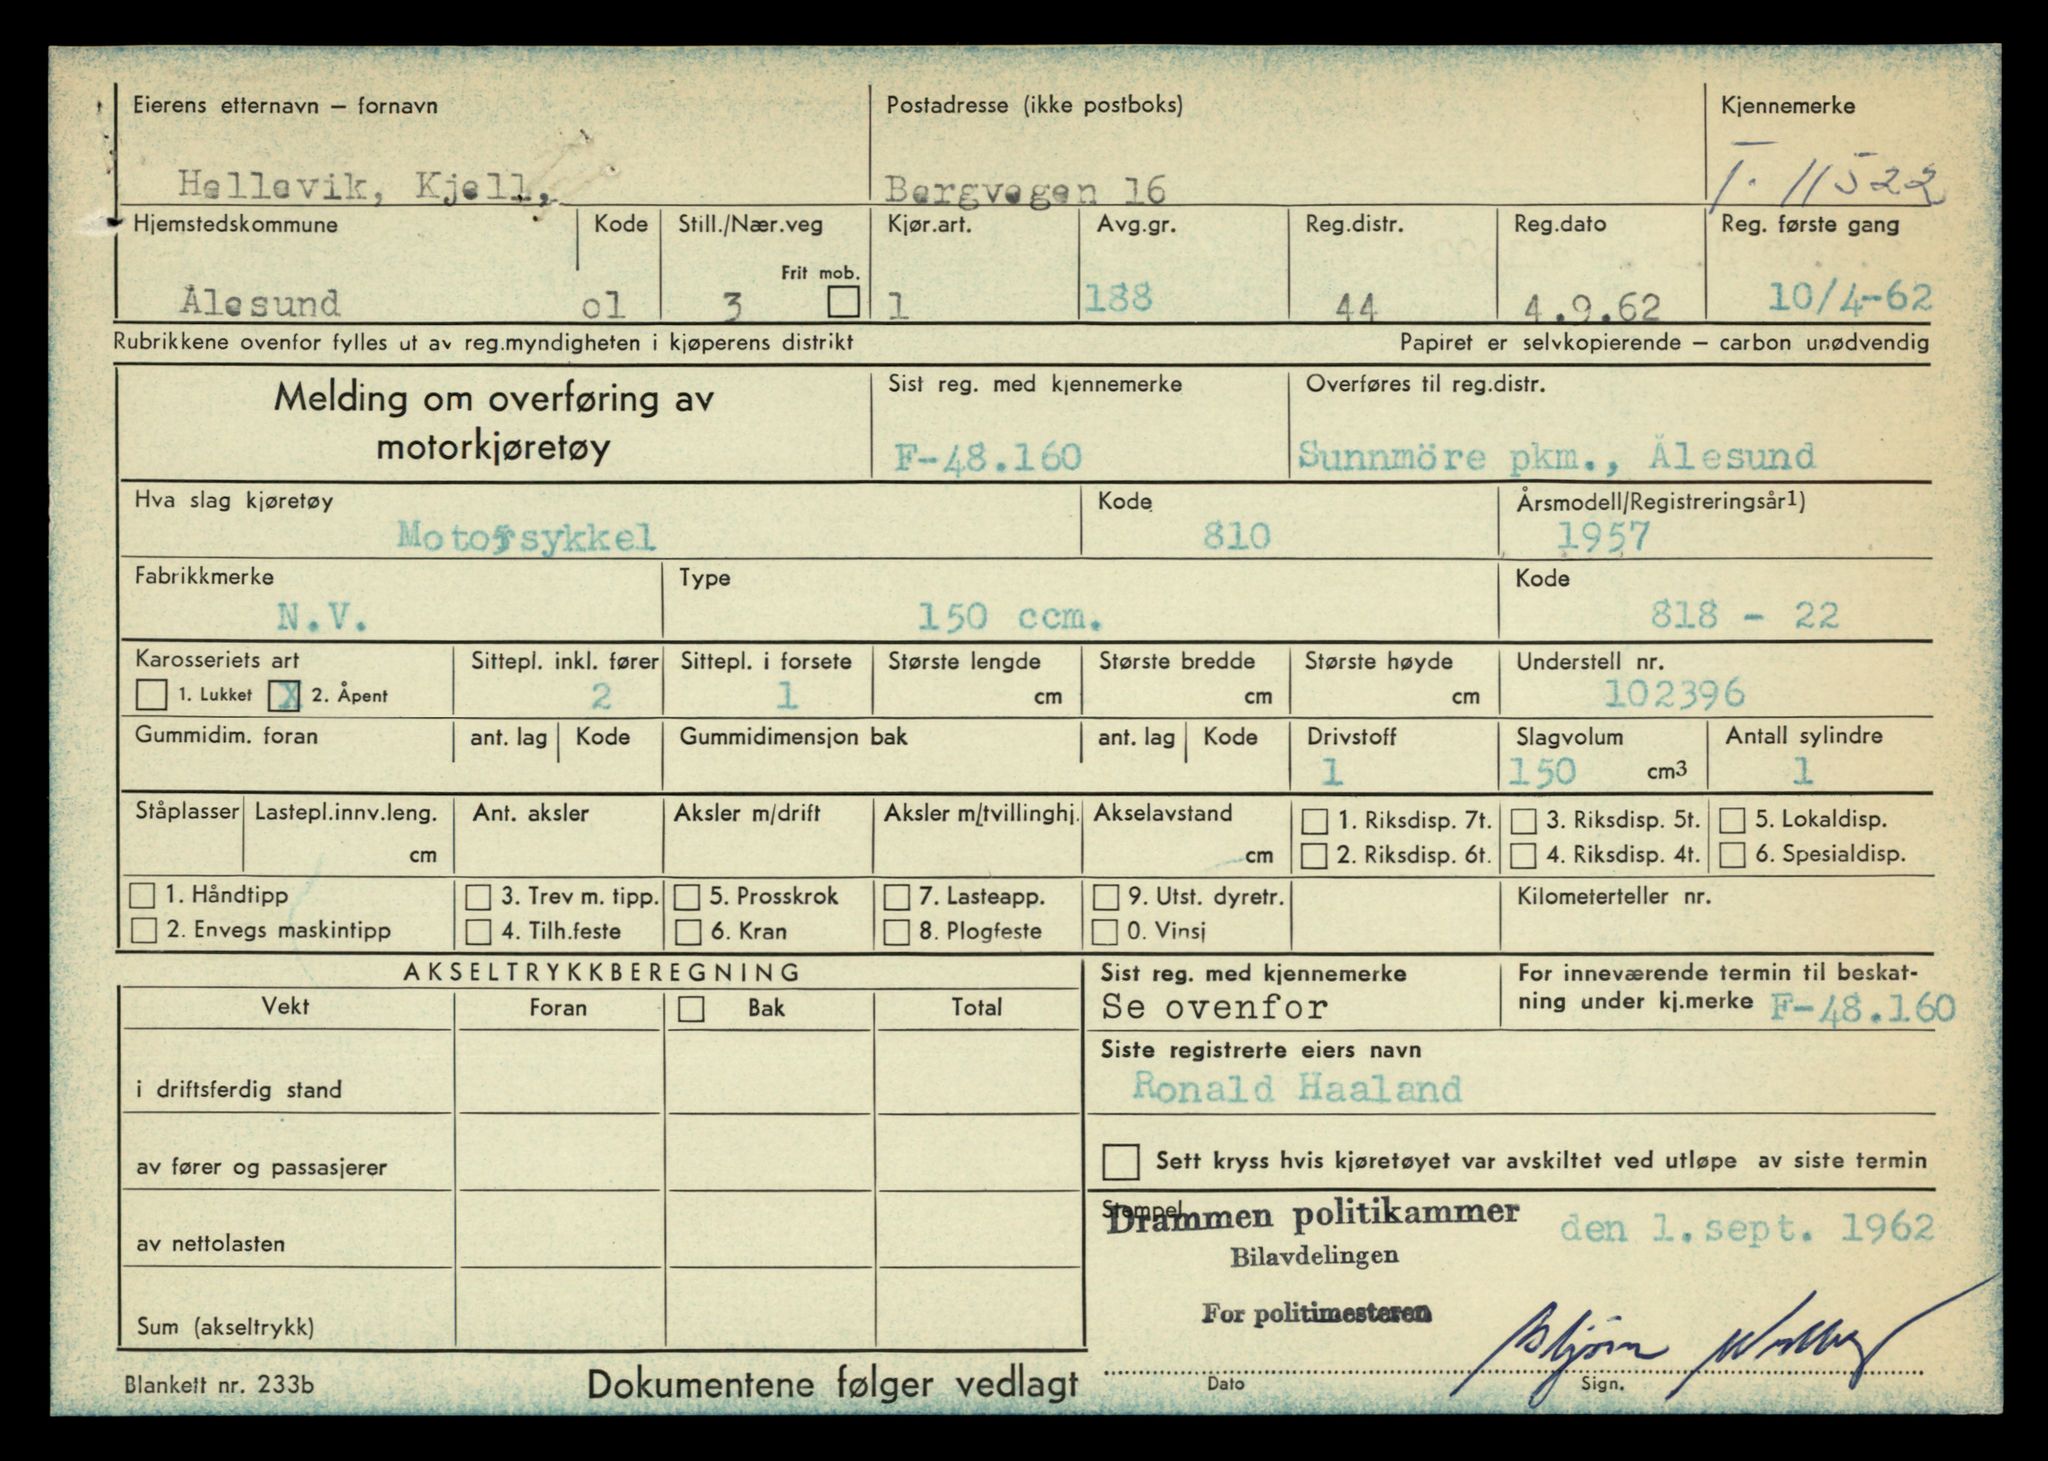 Eierens etternavn – fornavn Postadresse (ikke postboks) Kjennemerke
Hellevik, Kjell, Bergvegen 16 T. 11522
Hjemstedskommune Kode Still./Nær.veg Kjør.art. Avg.gr. Reg.distr. Reg.dato Reg. første gang
Frit mob.
Ålesund 01 3 1 188 44 4.9.62 10/4-62
Rubrikkene ovenfor fylles ut av reg.myndigheten i kjøperens distrikt Papiret er selvkopierende – carbon unødvendig
Melding om overføring av
motorkjøretøy
Sist reg. med kjennemerke Overføres til reg.distr.
F-48.160 Sunnmöre pkm., Ålesund
Hva slag kjøretøy Kode Årsmodell/Registreringsår1)
Motorsykkel 810 1957
Fabrikkmerke Type Kode
N.V. 150 ccm. 818 - 22
Karosseriets art Sittepl. inkl. fører Sittepl. i forsete Største lengde Største bredde Største høyde Understell nr.
1. Lukket X 2. Åpent 2 1 cm cm cm 102396
Gummidim. foran ant. lag Kode Gummidimensjon bak ant. lag Kode Drivstoff Slagvolum Antall sylindre
1 150 cm3 1
Ståplasser Lastepl.innv.leng. Ant. aksler Aksler m/drift Aksler m/tvillinghj. Akselavstand 1. Riksdisp. 7t. 3. Riksdisp. 5t. 5. Lokaldisp.
cm cm 2. Riksdisp. 6t. 4. Riksdisp. 4t. 6. Spesialdisp.
1. Håndtipp 3. Trev m. tipp. 5. Prosskrok 7. Lasteapp. 9. Utst. dyretr. Kilometerteller nr.
2. Envegs maskintipp 4. Tilh.feste 6. Kran 8. Plogfeste 0. Vinsj
AKSELTRYKKBEREGNING
Vekt Foran Bak Total
i driftsferdig stand
av fører og passasjerer
av nettolasten
Sum (akseltrykk)
Sist reg. med kjennemerke For inneværende termin til beskat-
Se ovenfor ning under kj.merke F-48.160
Siste registrerte eiers navn
Ronald Haaland
Sett kryss hvis kjøretøyet var avskiltet ved utløpe av siste termin
Stempel
Drammen politikammer den 1. sept. 1962
Bilavdelingen
For politimesteren
Dato Sign.
Blankett nr. 233b Dokumentene følger vedlagt